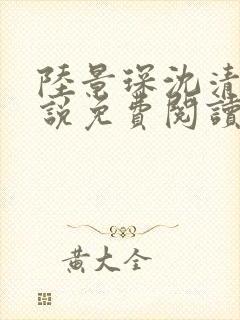 陸景琛沈清
說免費閱讀
黃大全